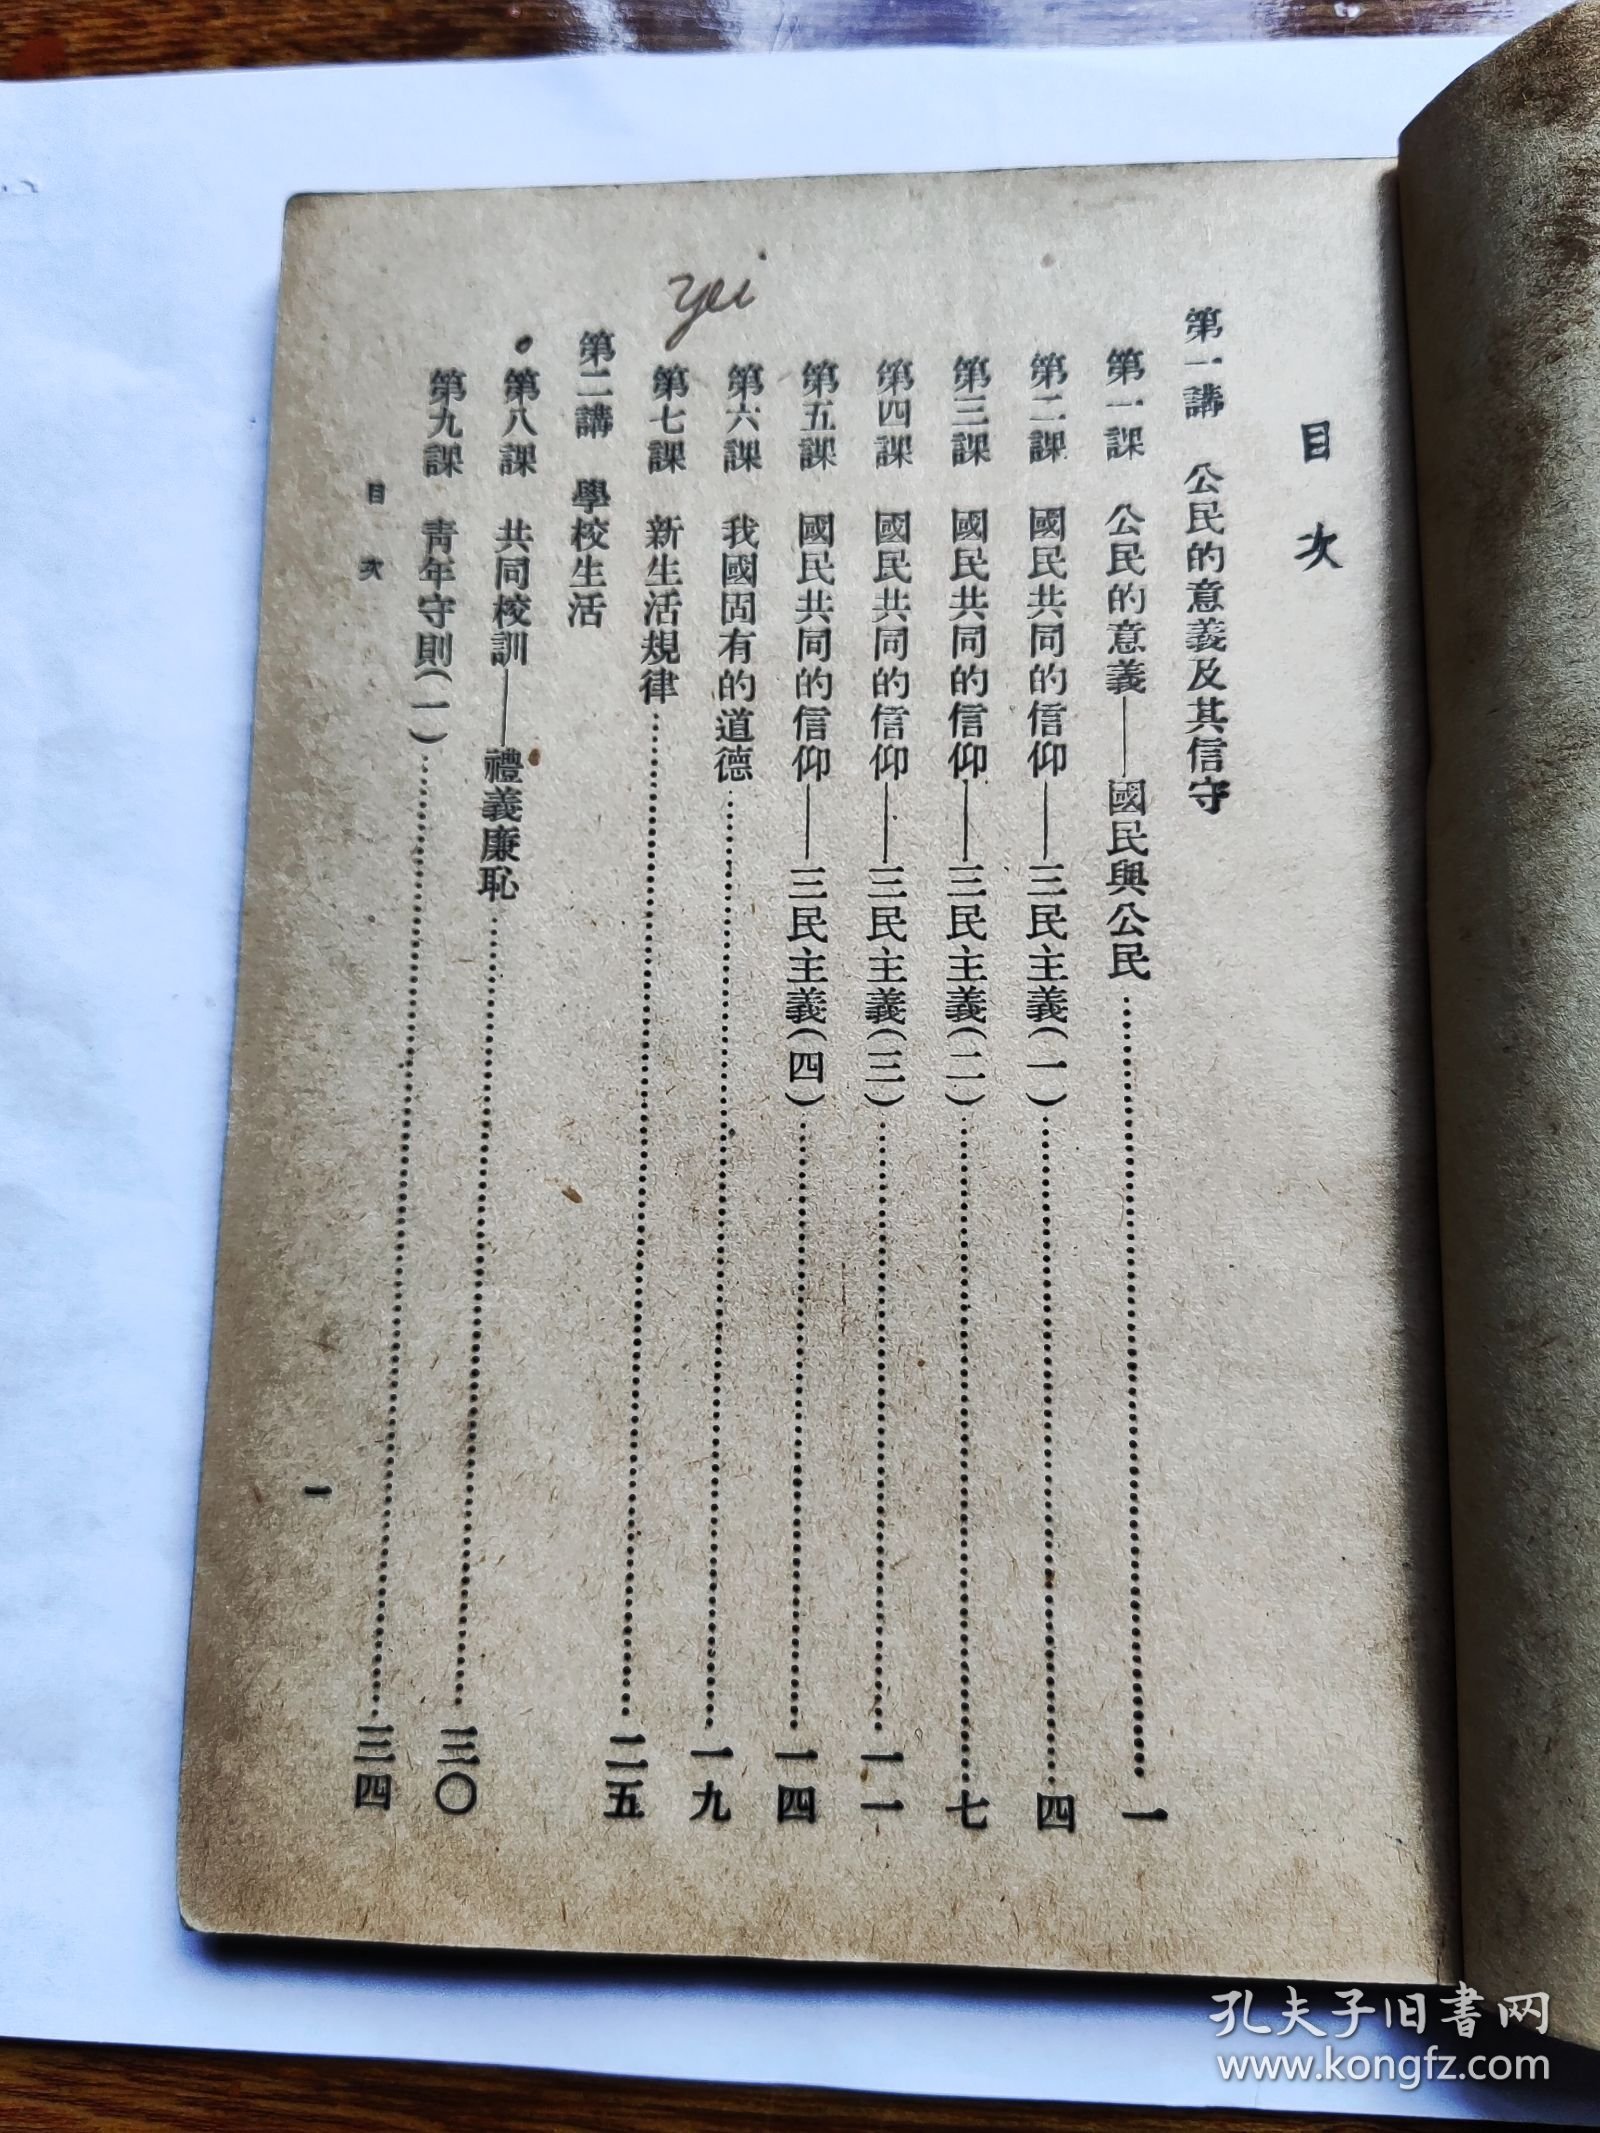 目次
第一講　公民的意義及其信守
第一課　公民的意義——國民與公民……一
第二課　國民共同的信仰——三民主義(一)……四
第三課　國民共同的信仰——三民主義(二)……七
第四課　國民共同的信仰——三民主義(三)……一一
第五課　國民共同的信仰——三民主義(四)……一四
第六課　我國固有的道德……一九
第七課　新生活規律……二五
第二講　學校生活
第八課　共同校訓——禮義廉恥……三〇
第九課　靑年守則(一)……三四
目次
一
yei
孔夫子旧書网
www.kongfz.com